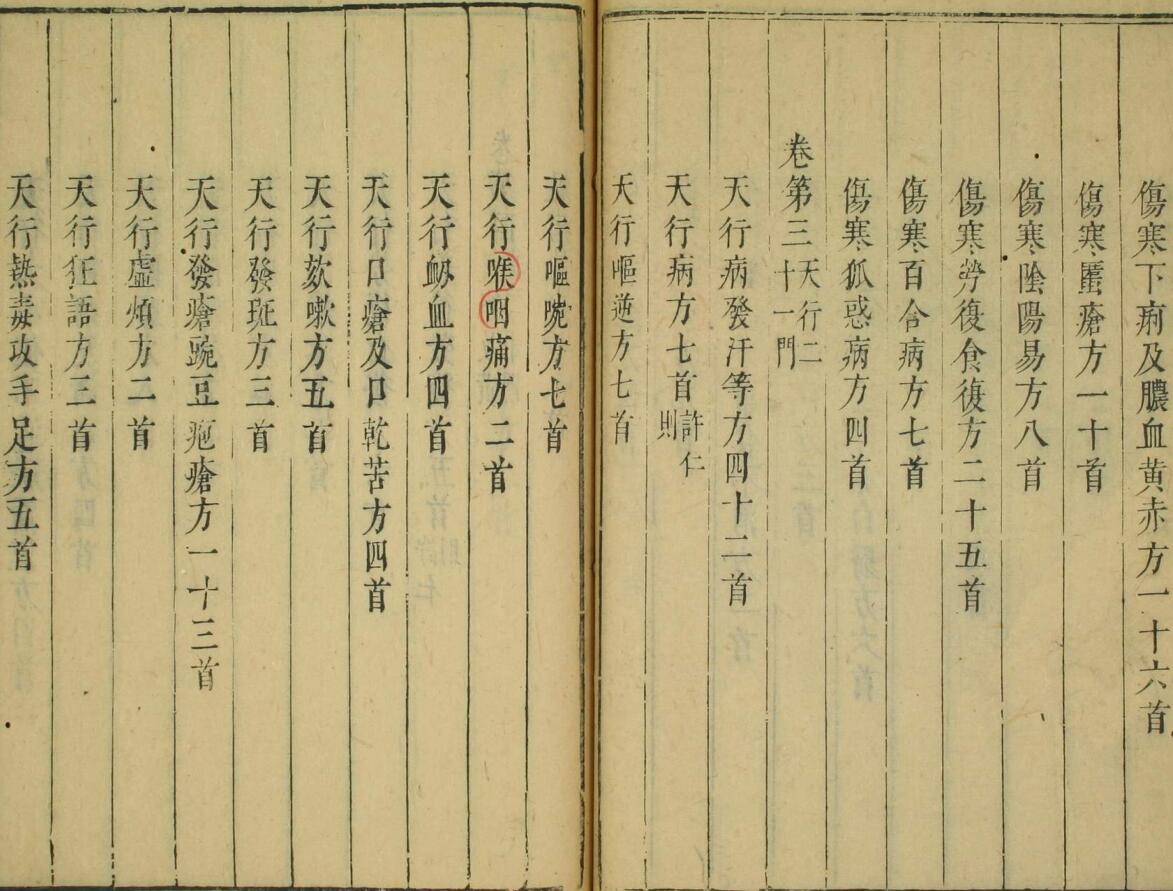 傷寒下痢及膿血黃赤方一十六首
傷寒䘌瘡方一十首
傷寒陰陽易方八首
傷寒勞復食復方二十五首
傷寒百合病方七首
傷寒狐惑病方四首
卷第三天行二十一門
天行病發汗等方四十二首
天行病方七首許仁則
天行嘔逆方七首
天行嘔啘方七首
天行喉咽痛方二首
天行衂血方四首
天行口瘡及口乾苦方四首
天行欬嗽方五首
天行發斑方三首
天行發瘡豌豆疱瘡方一十三首
天行虛煩方二首
天行狂語方三首
天行熱毒攻手足方五首